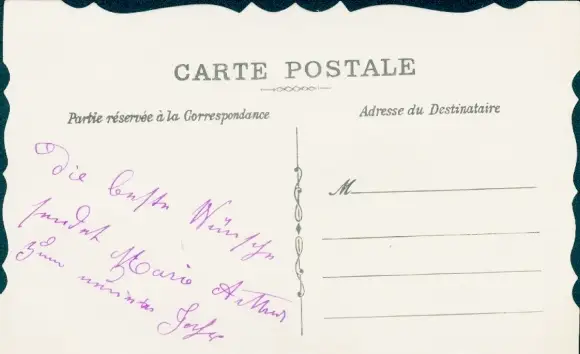 CARTE POSTALE
Partie réservée à la Correspondance
Adresse du Destinataire
M
Die beste Wünsche
sendet Marie Arthur
zum